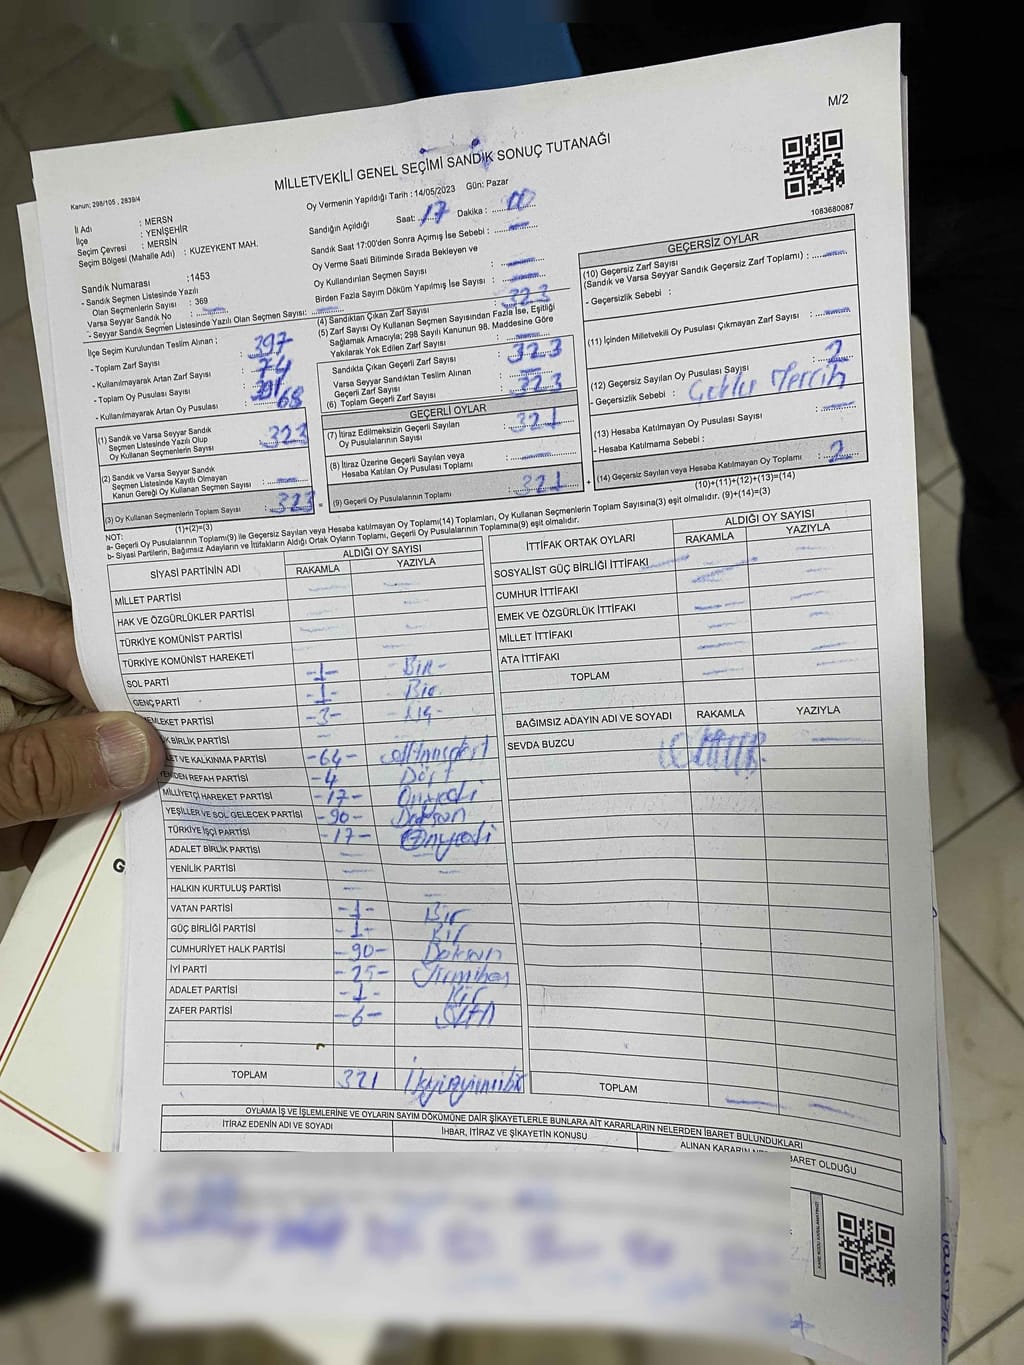 M/2
MİLLETVEKİLİ GENEL SEÇİMİ SANDIK SONUÇ TUTANAĞI
Kanun: 298/105 , 2839/4
1083680087
İl Adı : MERSN
İlçe : YENİŞEHİR
Seçim Çevresi : MERSİN
Seçim Bölgesi (Mahalle Adı) : KUZEYKENT MAH.
Sandık Numarası : 1453
- Sandık Seçmen Listesinde Yazılı
Olan Seçmenlerin Sayısı : 369
Varsa Seyyar Sandık No :
- Seyyar Sandık Seçmen Listesinde Yazılı Olan Seçmen Sayısı:
İlçe Seçim Kurulundan Teslim Alınan ;
- Toplam Zarf Sayısı : 397
- Kullanılmayarak Artan Zarf Sayısı : 74
- Toplam Oy Pusulası Sayısı :
- Kullanılmayarak Artan Oy Pusulası : 68
Oy Vermenin Yapıldığı Tarih : 14/05/2023 Gün: Pazar
Sandığın Açıldığı Saat: 17 Dakika : 00
Sandık Saat 17:00'den Sonra Açımış İse Sebebi :
Oy Verme Saati Bitiminde Sırada Bekleyen ve
Oy Kullandırılan Seçmen Sayısı :
Birden Fazla Sayım Döküm Yapılmış İse Sayısı :
(4) Sandıktan Çıkan Zarf Sayısı : 323
(5) Zarf Sayısı Oy Kullanan Seçmen Sayısından Fazla İse, Eşitliği
Sağlamak Amacıyla; 298 Sayılı Kanunun 98. Maddesine Göre
Yakılarak Yok Edilen Zarf Sayısı :
Sandıkta Çıkan Geçerli Zarf Sayısı : 323
Varsa Seyyar Sandıktan Teslim Alınan
Geçerli Zarf Sayısı :
(6) Toplam Geçerli Zarf Sayısı : 323
(1) Sandık ve Varsa Seyyar Sandık
Seçmen Listesinde Yazılı Olup
Oy Kullanan Seçmenlerin Sayısı : 323
(2) Sandık ve Varsa Seyyar Sandık
Seçmen Listesinde Kayıtlı Olmayan
Kanun Gereği Oy Kullanan Seçmen Sayısı :
(3) Oy Kullanan Seçmenlerin Toplam Sayısı : 323
(1)+(2)=(3)
GEÇERLİ OYLAR
(7) İtiraz Edilmeksizin Geçerli Sayılan
Oy Pusulalarının Sayısı : 321
(8) İtiraz Üzerine Geçerli Sayılan veya
Hesaba Katılan Oy Pusulası Toplamı :
(9) Geçerli Oy Pusulalarının Toplamı : 321
GEÇERSİZ OYLAR
(10) Geçersiz Zarf Sayısı
(Sandık ve Varsa Seyyar Sandık Geçersiz Zarf Toplamı) :
- Geçersizlik Sebebi :
(11) İçinden Milletvekili Oy Pusulası Çıkmayan Zarf Sayısı :
(12) Geçersiz Sayılan Oy Pusulası Sayısı : 2
- Geçersizlik Sebebi : Çoklu Tercih
(13) Hesaba Katılmayan Oy Pusulası Sayısı :
- Hesaba Katılmama Sebebi :
(14) Geçersiz Sayılan veya Hesaba Katılmayan Oy Toplamı : 2
(10)+(11)+(12)+(13)=(14)
NOT:
a- Geçerli Oy Pusulalarının Toplamı(9) ile Geçersiz Sayılan veya Hesaba katılmayan Oy Toplamı(14) Toplamları, Oy Kullanan Seçmenlerin Toplam Sayısına(3) eşit olmalıdır. (9)+(14)=(3)
b- Siyasi Partilerin, Bağımsız Adayların ve İttifakların Aldığı Ortak Oyların Toplamı, Geçerli Oy Pusulalarının Toplamına(9) eşit olmalıdır.
SİYASİ PARTİNİN ADI ALDIĞI OY SAYISI
RAKAMLA YAZIYLA
MİLLET PARTİSİ
HAK VE ÖZGÜRLÜKLER PARTİSİ
TÜRKİYE KOMÜNİST PARTİSİ
TÜRKİYE KOMÜNİST HAREKETİ
SOL PARTİ -1- Bir-
GENÇ PARTİ -1- Bir
MEMLEKET PARTİSİ -3- Üç-
BİRLİK PARTİSİ
ET VE KALKINMA PARTİSİ -64- Altmışdört
YENİDEN REFAH PARTİSİ -4 Dört
MİLLİYETÇİ HAREKET PARTİSİ -17- Onyedi
YEŞİLLER VE SOL GELECEK PARTİSİ -90- Doksan
TÜRKİYE İŞÇİ PARTİSİ -17- Onyedi
ADALET BİRLİK PARTİSİ
YENİLİK PARTİSİ
HALKIN KURTULUŞ PARTİSİ
VATAN PARTİSİ -1- Bir
GÜÇ BİRLİĞİ PARTİSİ -1- Bir
CUMHURİYET HALK PARTİSİ -90- Doksan
İYİ PARTİ -25- Yirmibeş
ADALET PARTİSİ -1- Bir
ZAFER PARTİSİ -6- Altı
TOPLAM 321 İkyüzyirmibir
İTTİFAK ORTAK OYLARI ALDIĞI OY SAYISI
RAKAMLA YAZIYLA
SOSYALİST GÜÇ BİRLİĞİ İTTİFAKI
CUMHUR İTTİFAKI
EMEK VE ÖZGÜRLÜK İTTİFAKI
MİLLET İTTİFAKI
ATA İTTİFAKI
TOPLAM
BAĞIMSIZ ADAYIN ADI VE SOYADI RAKAMLA YAZIYLA
SEVDA BUZCU
TOPLAM
OYLAMA İŞ VE İŞLEMLERİNE VE OYLARIN SAYIM DÖKÜMÜNE DAİR ŞİKAYETLERLE BUNLARA AİT KARARLARIN NELERDEN İBARET BULUNDUKLARI
İTİRAZ EDENİN ADI VE SOYADI İHBAR, İTİRAZ VE ŞİKAYETİN KONUSU ALINAN KARARIN NE BARET OLDUĞU
G